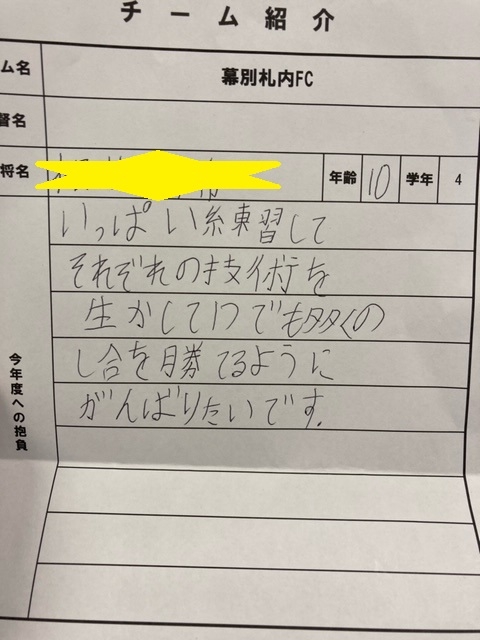 チーム紹介
ム名 幕別札内FC
督名
将名 年齢 10 学年 4
今年度への抱負
いっぱい練習して
それぞれの技術を
生かして1つでも多くの
し合を勝てるように
がんばりたいです.